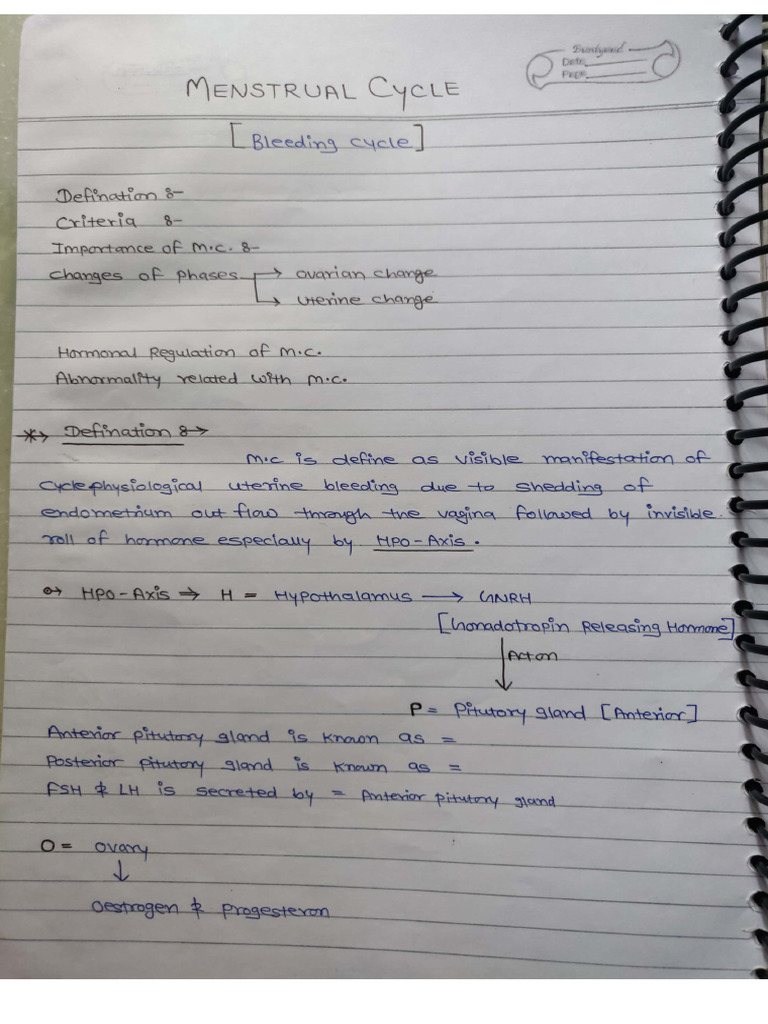 Date
Page
MENSTRUAL CYCLE
[Bleeding cycle]
Defination :-
Criteria :-
Importance of M.C. :-
Changes of phases → ovarian change
→ Uterine change
Hormonal Regulation of M.C.
Abnormality related with M.C.
* Defination :→
M.C is define as visible manifestation of
cycle physiological uterine bleeding due to shedding of
endometrium out flow through the vagina followed by invisible
roll of hormone especially by HPO-Axis.
HPO-Axis ⇒ H = Hypothalamus → GNRH
[Gonadotropin Releasing Hormone]
↓ Act on
P = Pitutory gland [Anterior]
Anterior pitutory gland is known as =
Posterior pitutory gland is known as =
FSH & LH is secreted by = Anterior pitutory gland
O = ovary
↓
Oestrogen & Progesteron